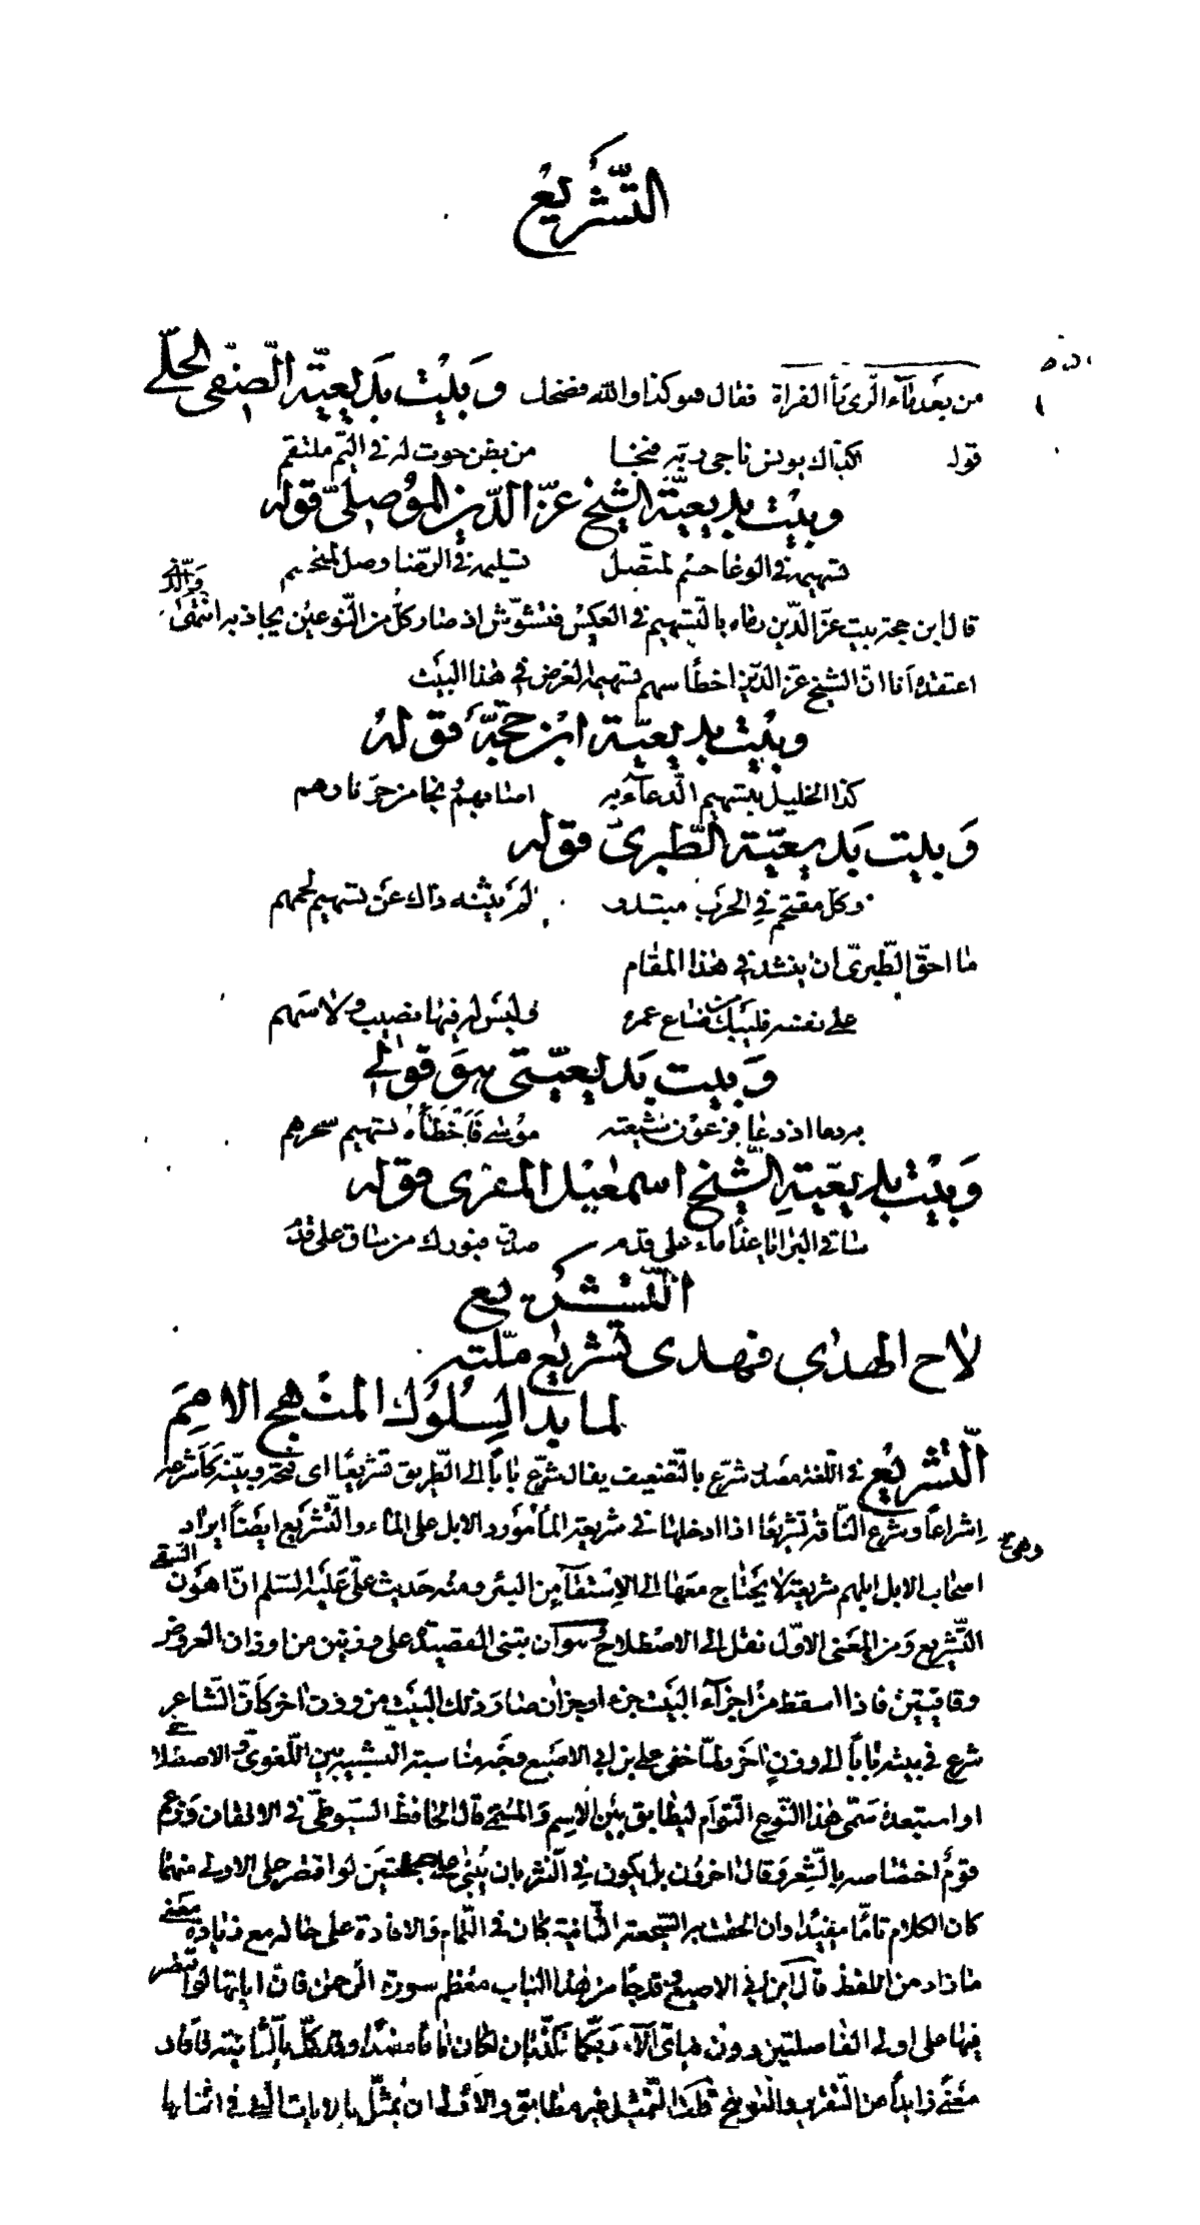 التَّشْرِيعُ
من بعد ناء الرى نا الفراة فقال هو كذا والله فضحك وَبَيْتُ بَدِيعِيَّةِ الصَّفِيِّ الْحِلِّي
قوله كذاك يونس ناجى ربّه فنجا من بطن حوت له فى اليمّ ملتقم
وبيْت بديعيّة الشيخ عزّ الدّين الموصلىّ قوله
تسهيمه فى الوغا حتم لمتّصل تسليمه فى الرّضا وصل لمنخيم
قال ابن حجة بيت عزّ الدّين بالتّسهيم فى العكس فتشوّش اذ صار كلّ من النّوعين يجاذبه انتهى والّذى
اعتقده أنا انّ الشيخ عزّ الدّين اخطأ سهم تسهيمه الغرض فى هذا البيت
وبيْت بديعيّة ابن حجّة فقوله
كذا الخليل بتسهيم الدّعآء به اصابهم ونجا من حرّ نارهم
وَبيت بَديعيّة الطّبرىّ فقوله
وكلّ مقتحم فى الحرب مبتدر لم يثنه ذاك عن تسهيم لحمهم
ما احقّ الطّبرىّ ان ينشد فى هذا المقام
على نفسه فليبك من ضاع عمره وليس له فيها نصيب ولا سهم
وَبيت بَديعيّتى هوَ قولى
به دعا اذ دعا فرعون شيعته موسى فأخطأه تسهيم سحرهم
وَبيْت بديعيّةِ الشّيخ اسمعيل المقرى فقوله
ساقى البرايا غذا ماء على قدم صدق فبورك من ساق على قدم
التّشريع
لاح الهدى فهدى تشريع ملّته
لما بدا لسلُوك المنهج الامم
التّشريع فى اللّغة مصدر شرّع بالتّضعيف يقال شرّع بابًا الى الطّريق تشريعًا اى فتحه وبيّنه كاشرعه
اِشراعًا وشرع النّاقة تشريعًا اذا ادخلها فى شريعة الماء وهى مورد الابل على الماء والتّشريع ايضًا ايراد
اصحاب الابل ابلهم شريعة لا يحتاج معها الى الاستقآء من البئر ومنه حديث علىّ عليه السلم انّ اهون السّقى
التّشريع وَمن المعنى الاوّل نقل الى الاصطلاح وهو أن يبنى القصيدة على وزنين من اوزان العروض
وقافيتين فاذا اسقط من اجزآء البيت جزء او جزان صار ذلك البيت من وزن اخر كأنّ الشّاعر
شرع فى بيته بابًا الى وزن اخر ولمّا خفى على بن ابى الاصبع وجه مناسبة التّشبيه بين اللّغوى والاصطلاحى
او استبعده سمّى هذا النّوع التّوأم ليطابق بين الاسم والمسمّى قال الحافظ السّيوطىّ فى الاتقان وزعم
قومٌ اختصاصه بالشّعر وقال اخرون بل يكون فى النّثر بان يُبنى على سجعتين لو اقتصر على الاولى منهما
كان الكلام تامًّا مفيدًا وان الحقت به السّجعة الثّانية كان فى التّمام والافادة على حاله مع زيادة معنى
ما زاد من اللفظ قال ابن ابى الاصبع وقد جا من هذا الباب معظم سورة الرحمن فانّ اياتها لو اقتصر
فيها على اولى الفاصلتين دون فباى الآء ربّكما تكذّبان لكان تامًا مفيدًا وقد كمّل بالثّانية فأفاد
معنًى زايدًا من التّقرير والتّوبيخ قلت التّمثيل غير مطابق والاولى ان يمثّل بالايات الّتى فى اثنايها